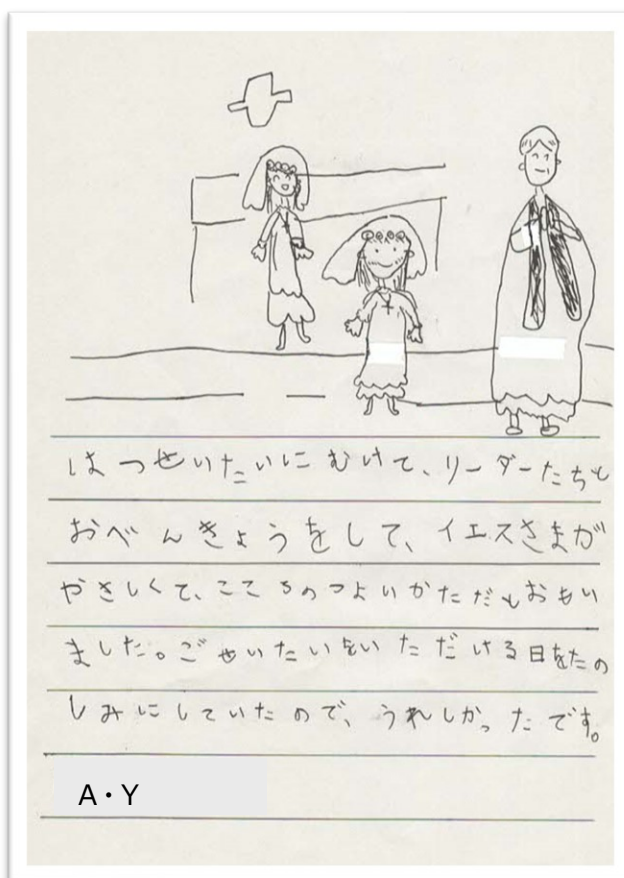 はつせいたいにむけて、リーダーたちと
おべんきょうをして、イエスさまが
やさしくて、こころのつよいかただとおもい
ました。ごせいたいをいただける日をたの
しみにしていたので、うれしかったです。
A・Y